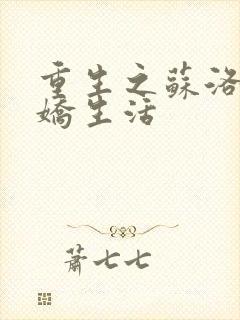 重生之蘇洛
嬌生活
蕭七七